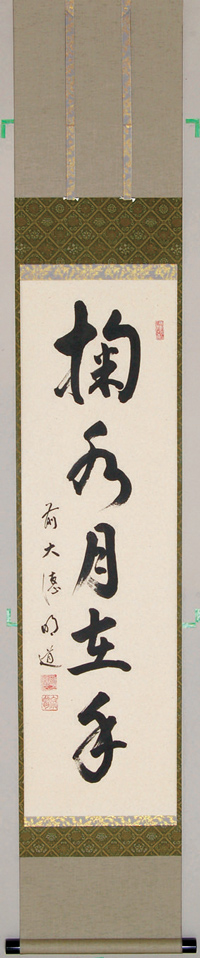 掬水月在手
前大德明道